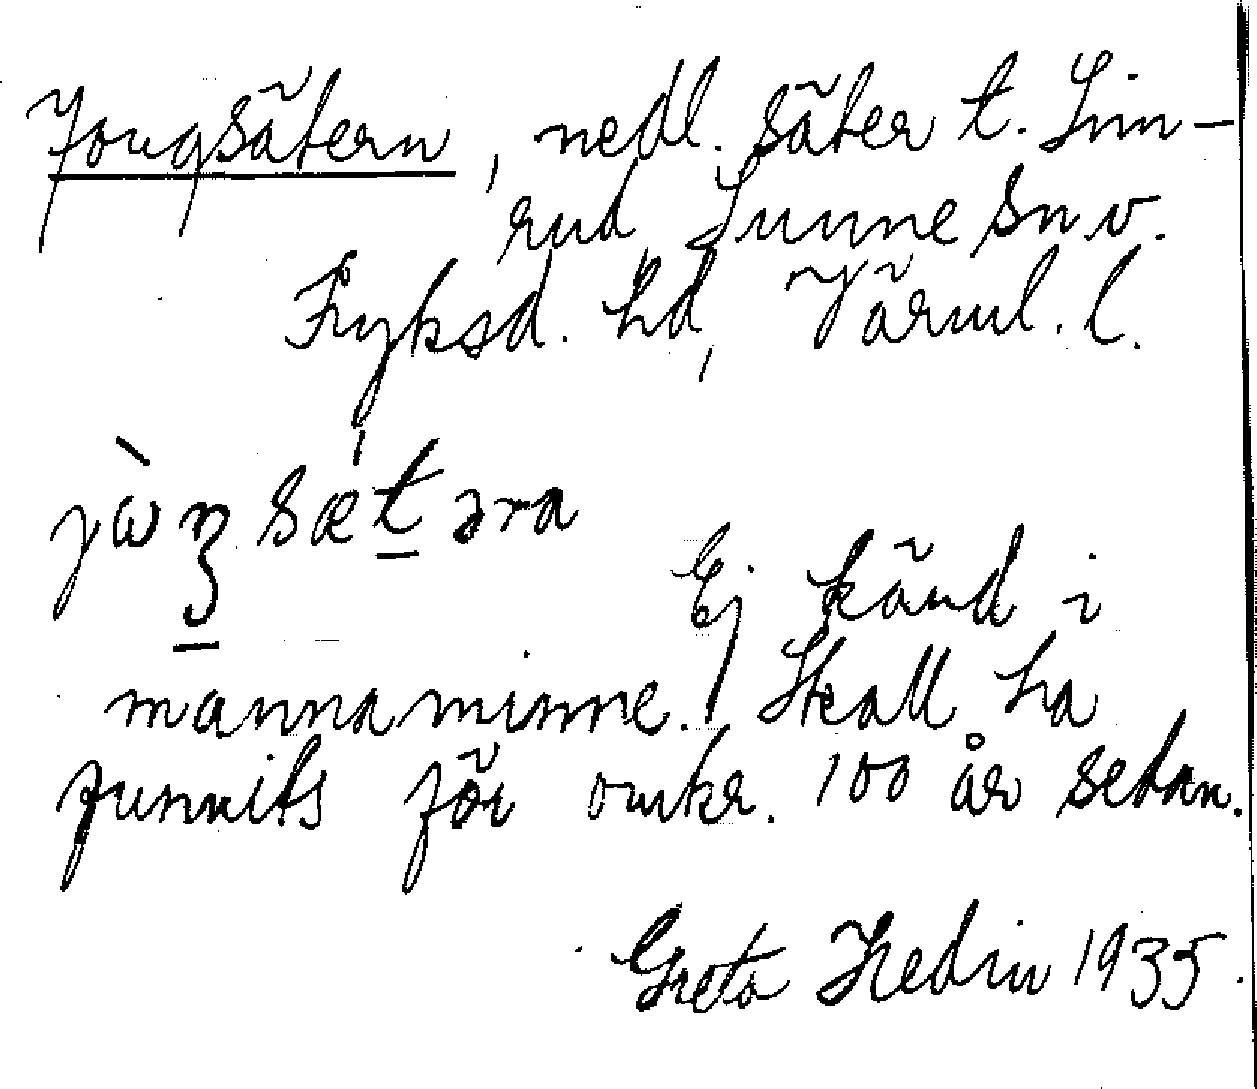 Jongsätern, nedl. säter t. Lin-
rud, Sunne sn. v.
Fryksd. hd, Värml. l.
sætəra
Ej känd i
mannaminne. Skall ha
funnits för omkr. 100 år sedan.
Greta Hedin 1935.